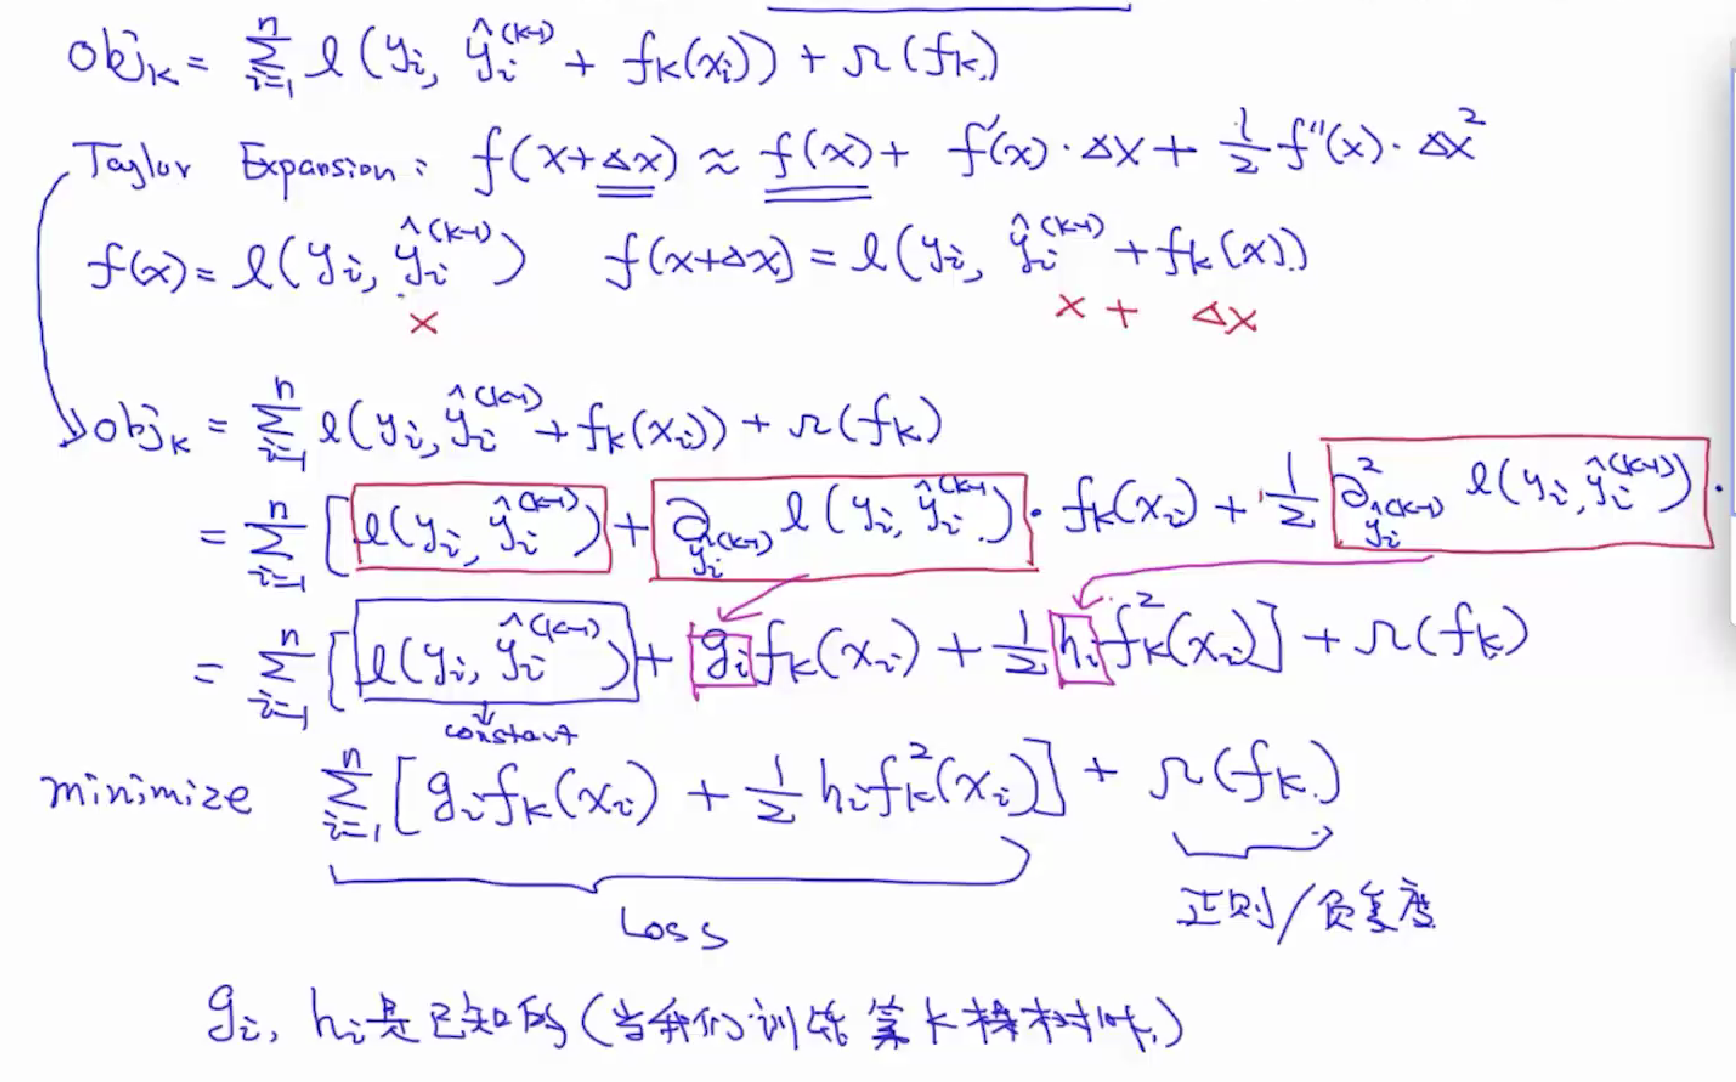 obj_k = Σ_{i=1}^{n} l(y_i, ŷ_i^{(k-1)} + f_k(x_i)) + Ω(f_k)
Taylor Expansion: f(x+Δx) ≈ f(x) + f'(x)·Δx + 1/2 f''(x)·Δx²
f(x) = l(y_i, ŷ_i^{(k-1)}) f(x+Δx) = l(y_i, ŷ_i^{(k-1)} + f_k(x))
x x + Δx
obj_k = Σ_{i=1}^{n} l(y_i, ŷ_i^{(k-1)} + f_k(x_i)) + Ω(f_k)
= Σ_{i=1}^{n} [l(y_i, ŷ_i^{(k-1)}) + ∂_{ŷ_i^{(k-1)}} l(y_i, ŷ_i^{(k-1)}) · f_k(x_i) + 1/2 ∂²_{ŷ_i^{(k-1)}} l(y_i, ŷ_i^{(k-1)}) ·
= Σ_{i=1}^{n} [l(y_i, ŷ_i^{(k-1)}) + g_i f_k(x_i) + 1/2 h_i f_k²(x_i)] + Ω(f_k)
constant
minimize Σ_{i=1}^{n} [g_i f_k(x_i) + 1/2 h_i f_k²(x_i)] + Ω(f_k)
Loss 正则/负复杂度
g_i, h_i 是已知的 (当我们训练第k棵树时.)